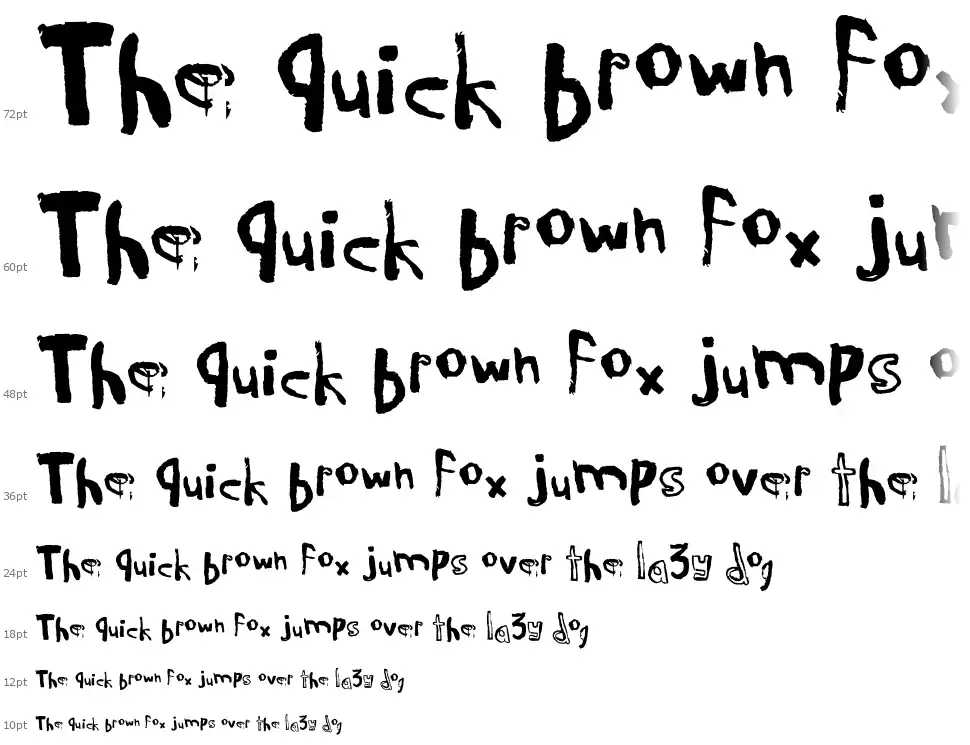 72pt The quick brown fox
60pt The quick brown fox jum
48pt The quick brown fox jumps o
36pt The quick brown fox jumps over the la
24pt The quick brown fox jumps over the la3y dog
18pt The quick brown fox jumps over the la3y dog
12pt The quick brown fox jumps over the la3y dog
10pt The quick brown fox jumps over the la3y dog